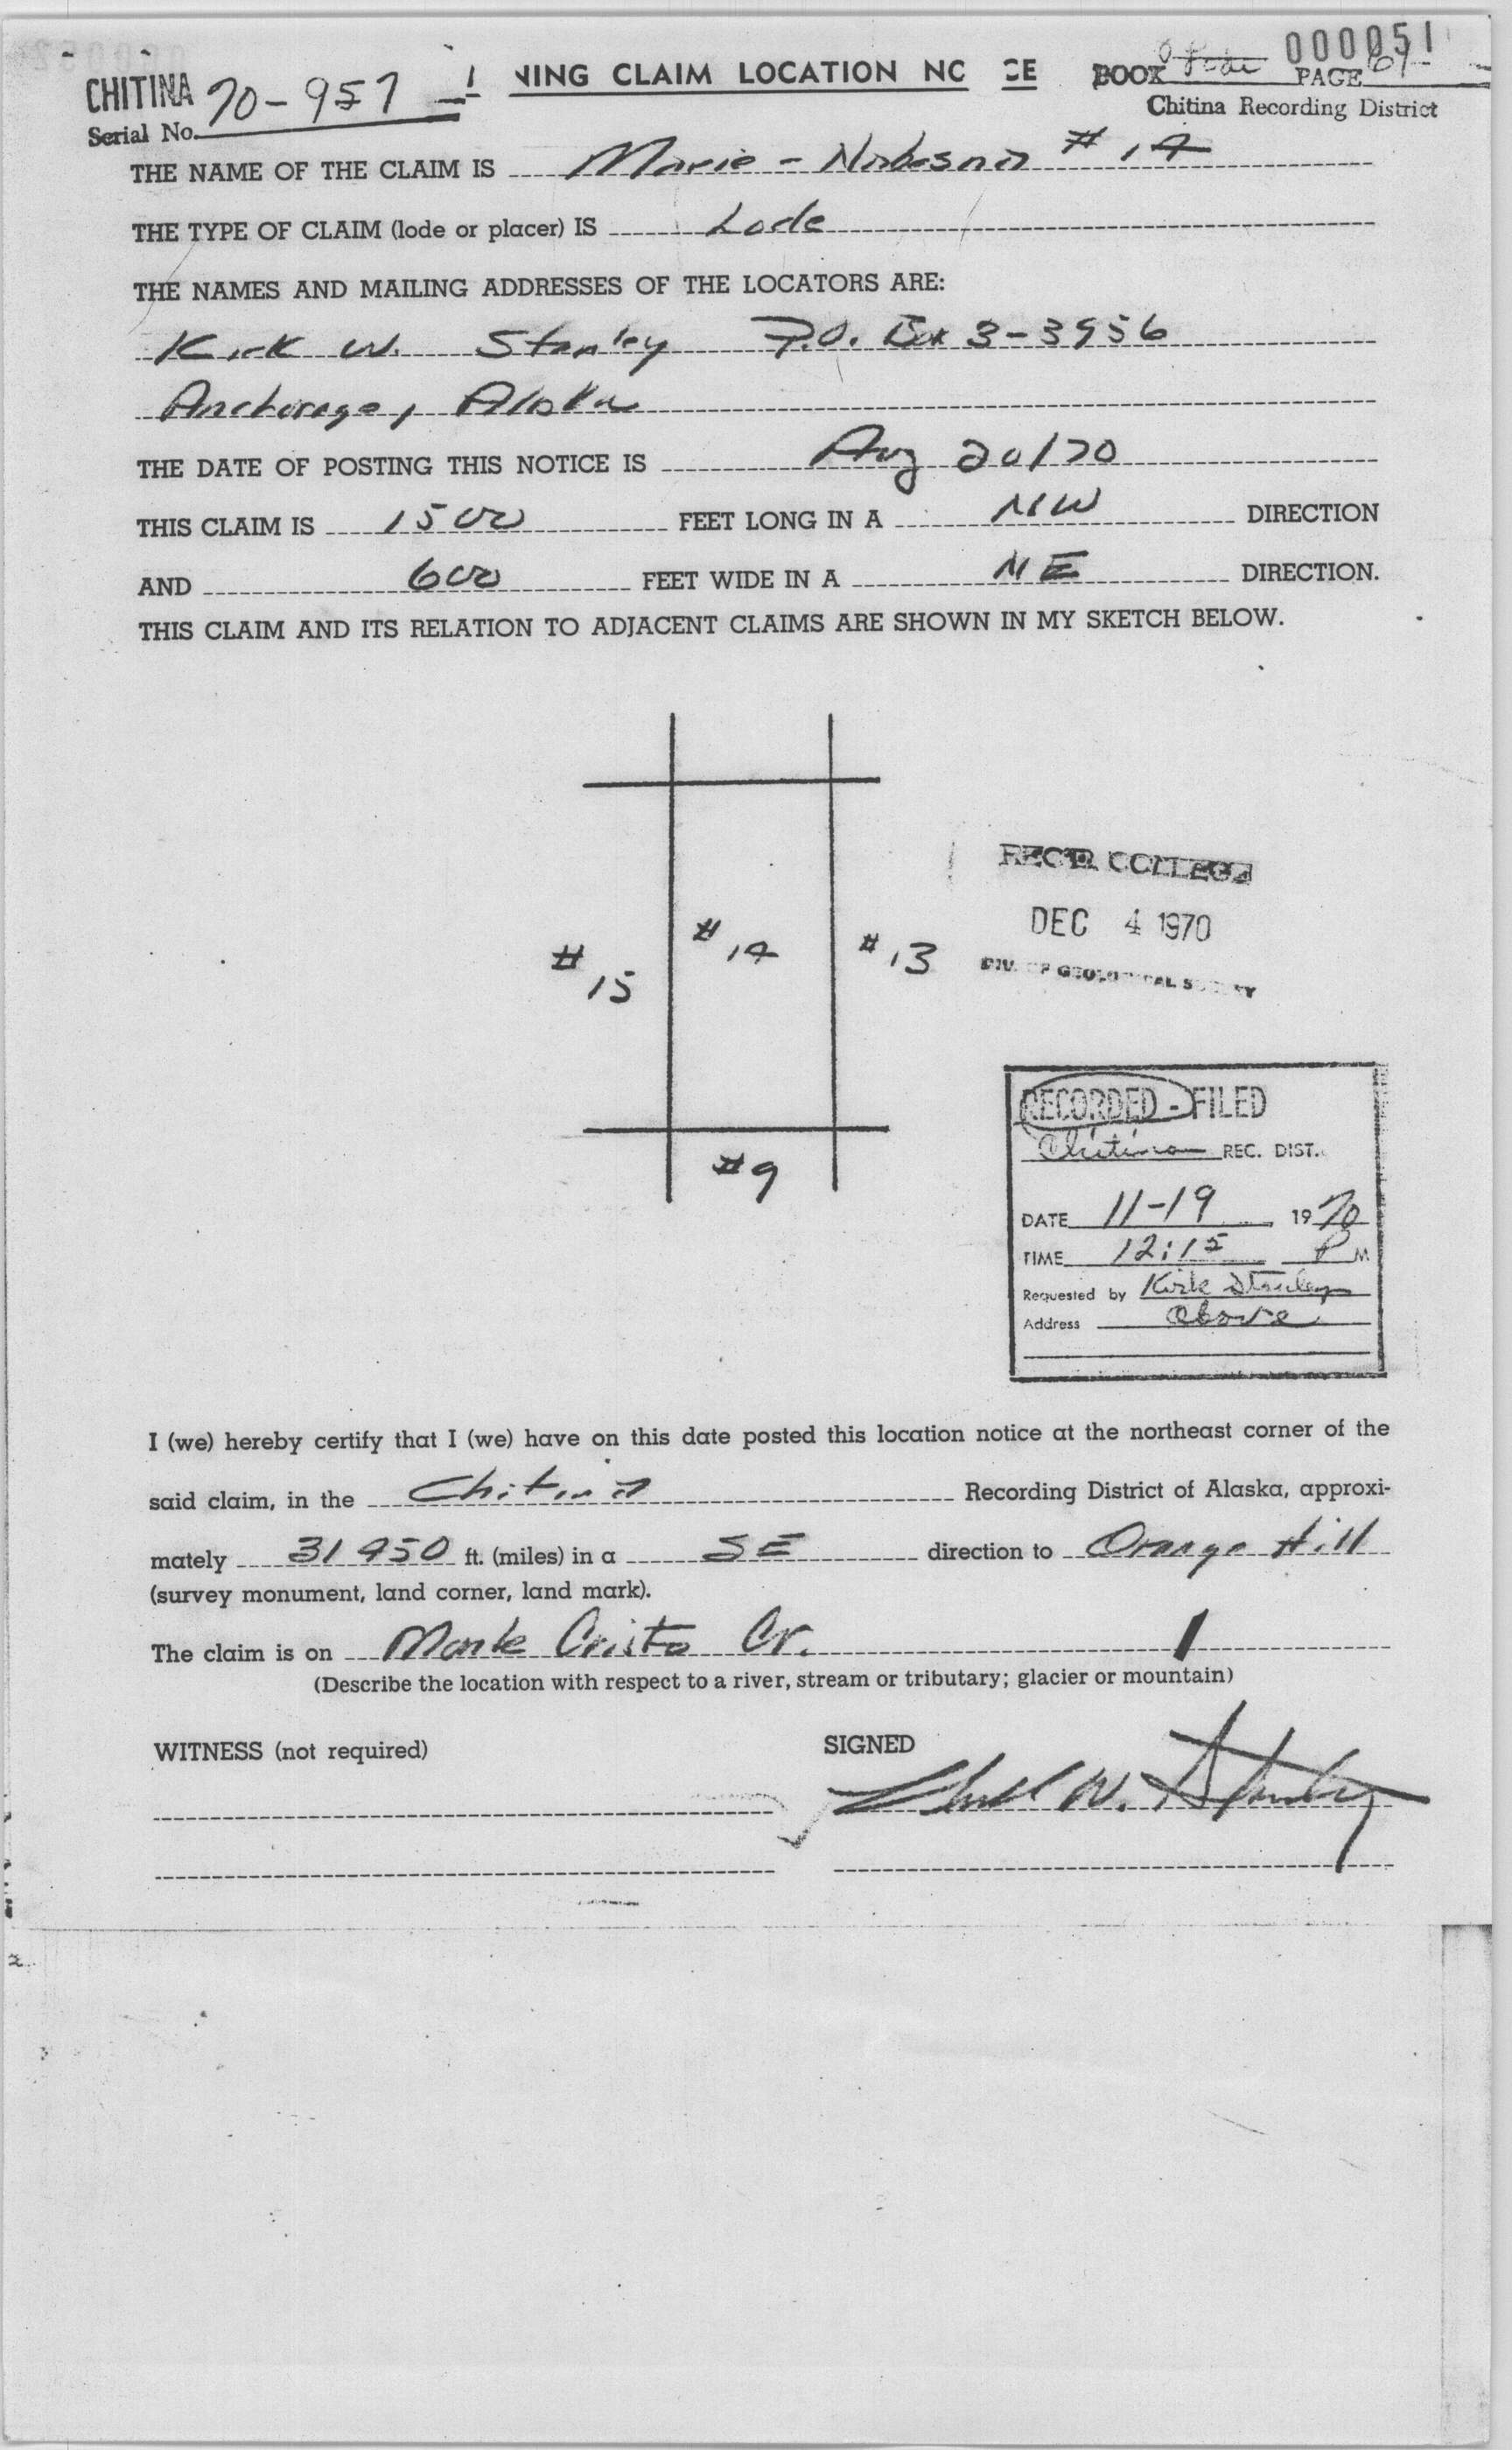 000051
CHITINA 70-957
NING CLAIM LOCATION NO CE
BOOK PAGE 61
Serial No.
Chitina Recording District
THE NAME OF THE CLAIM IS Marie - Nabesna #14
THE TYPE OF CLAIM (lode or placer) IS Lode
THE NAMES AND MAILING ADDRESSES OF THE LOCATORS ARE:
Kirk W. Stanley P.O. Box 3-3956
Anchorage, Alaska
THE DATE OF POSTING THIS NOTICE IS Aug 20/70
THIS CLAIM IS 1500 FEET LONG IN A NW DIRECTION
AND 600 FEET WIDE IN A NE DIRECTION.
THIS CLAIM AND ITS RELATION TO ADJACENT CLAIMS ARE SHOWN IN MY SKETCH BELOW.
REC'D. COLLEGE
DEC 4 1970
DIV. OF GEOLOGICAL SURVEY
#15
#14
#13
#9
RECORDED - FILED
Chitina REC. DIST.
DATE 11-19 1970
TIME 12:15 P M
Requested by Kirk Stanley
Address above
I (we) hereby certify that I (we) have on this date posted this location notice at the northeast corner of the
said claim, in the Chitina Recording District of Alaska, approxi-
mately 31950 ft. (miles) in a SE direction to Orange Hill
(survey monument, land corner, land mark).
The claim is on Monte Cristo Cr.
(Describe the location with respect to a river, stream or tributary; glacier or mountain)
WITNESS (not required)
SIGNED
Kirk W. Stanley